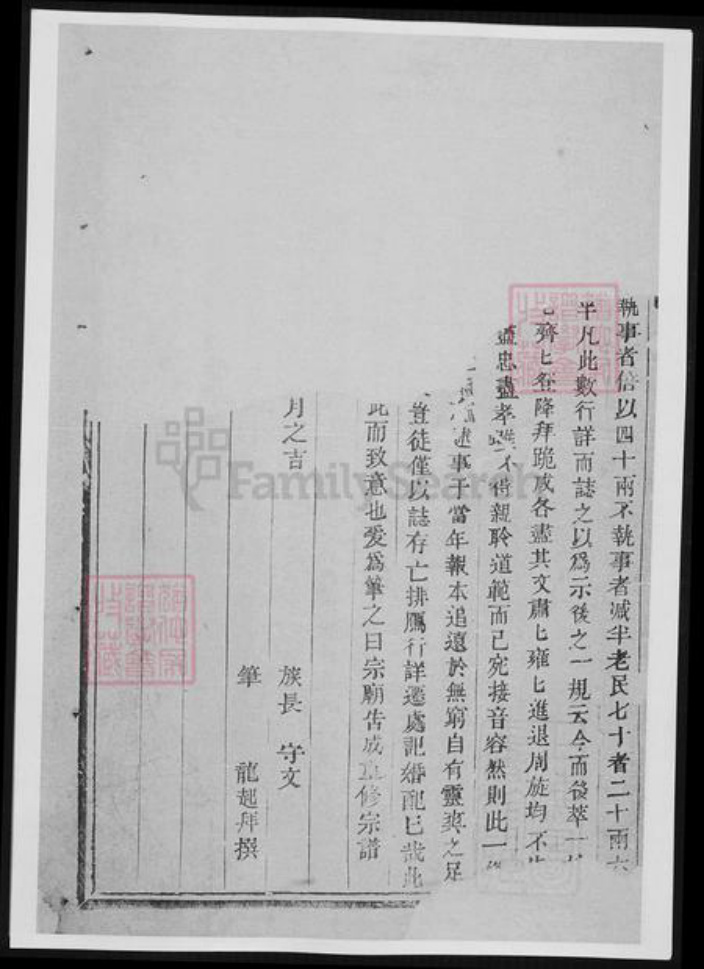 執事者倍以四十兩不執事者減半老民七十者二十兩六
半凡此數行詳而誌之以爲示後之一規云今而後萃一
齊匕登降拜跪咸各盡其文肅匕雍匕進退周旋均不
忠盡孝 不待親聆道範而已宛接音容然則此一
事于當年報本追遠於無窮自有靈爽之足
豈徒僅以誌存亡排鴈行詳遷處記婚配已哉此
此而致意也爰爲筆之曰宗廟告成宜修宗譜
月之吉
族長 守文
筆 龍起拜撰
FamilySearch